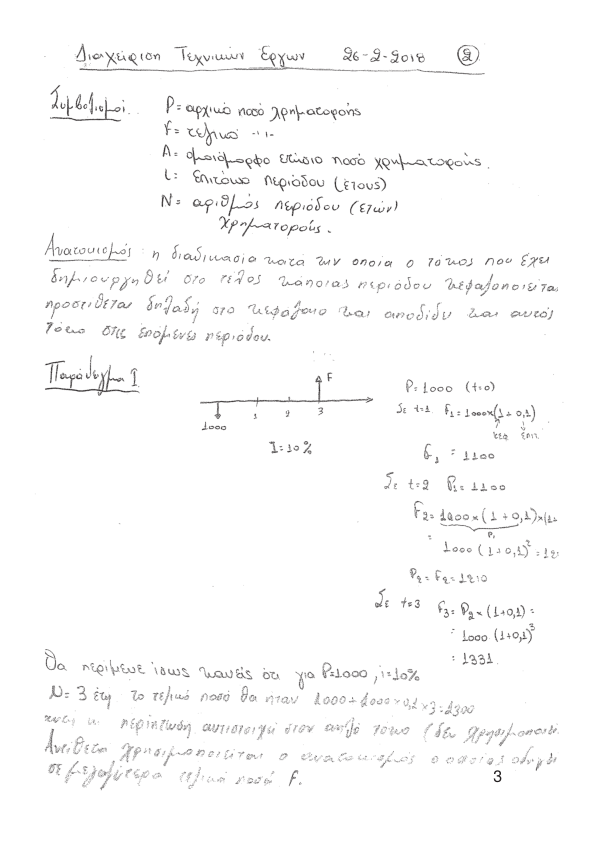 Διαχείριση Τεχνικών Έργων 26-2-2018 ②
Συμβολισμοί P = αρχικό ποσό χρηματοροής
F = τελικό -"-
A = ομοιόμορφο ετήσιο ποσό χρηματοροής.
i = επιτόκιο περιόδου (έτους)
N = αριθμός περιόδου (ετών)
χρηματοροής.
Ανατοκισμός: η διαδικασία κατά την οποία ο τόκος που έχει
δημιουργηθεί στο τέλος κάποιας περιόδου κεφαλοποιείται
προστίθεται δηλαδή στο κεφάλαιο και αποδίδει και αυτός
τόκο στις επόμενες περιόδου.
Παράδειγμα 1
F
1 2 3
1000
I=10%
P=1000 (t=0)
Σε t=1 F1=1000×(1+0,1)
κεφ επιτ.
F1 = 1100
Σε t=2 P1=1100
F2=1000×(1+0,1)×(1+
P1
= 1000 (1+0,1)²=121
P2=F2=1210
Σε t=3 F3=P2×(1+0,1)=
= 1000 (1+0,1)³
= 1331.
Θα περίμενε ίσως κανείς ότι για P=1000, i=10%
N=3 έτη το τελικό ποσό θα ήταν 1000+1000×0,1×3=1300
περίπτωση αντιστοιχεί στον απλό τόκο (δεν
Αντίθετα χρησιμοποιείται ο ανατοκισμός ο οποίος οδηγεί
σε μεγαλύτερα τελικά ποσά F.
3